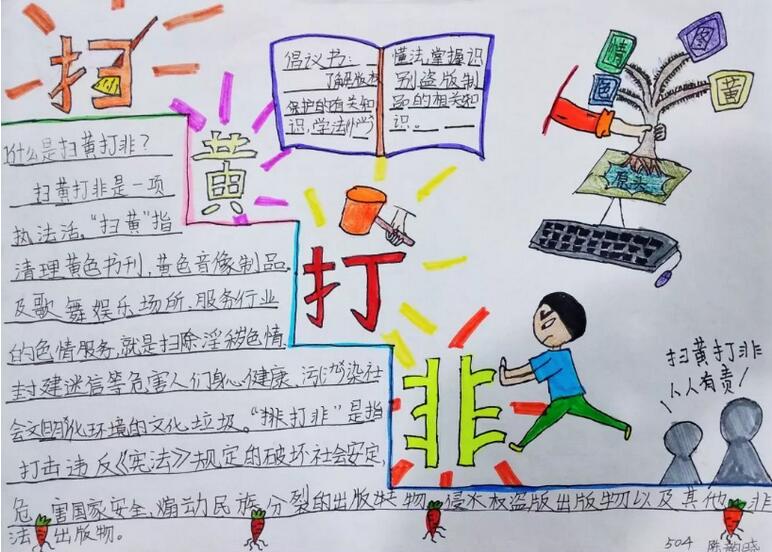 扫
黄
打
非
倡议书：
了解版权
保护的有关知
识，学法
懂法，掌握识
别盗版制
品的相关知
识。
情
图
色
黄
源头
什么是扫黄打非？
扫黄打非是一项
执法活，“扫黄”指
清理黄色书刊，黄色音像制品，
及歌舞娱乐场所、服务行业
的色情服务，就是扫除淫秽色情，
封建迷信等危害人们身心健康、污染社
会文明化环境的文化垃圾。“打非”是指
打击违反《宪法》规定的破坏社会安定，
危害国家安全，煽动民族分裂的出版物，侵权盗版出版物以及其他非
法出版物。
扫黄打非
人人有责！
504